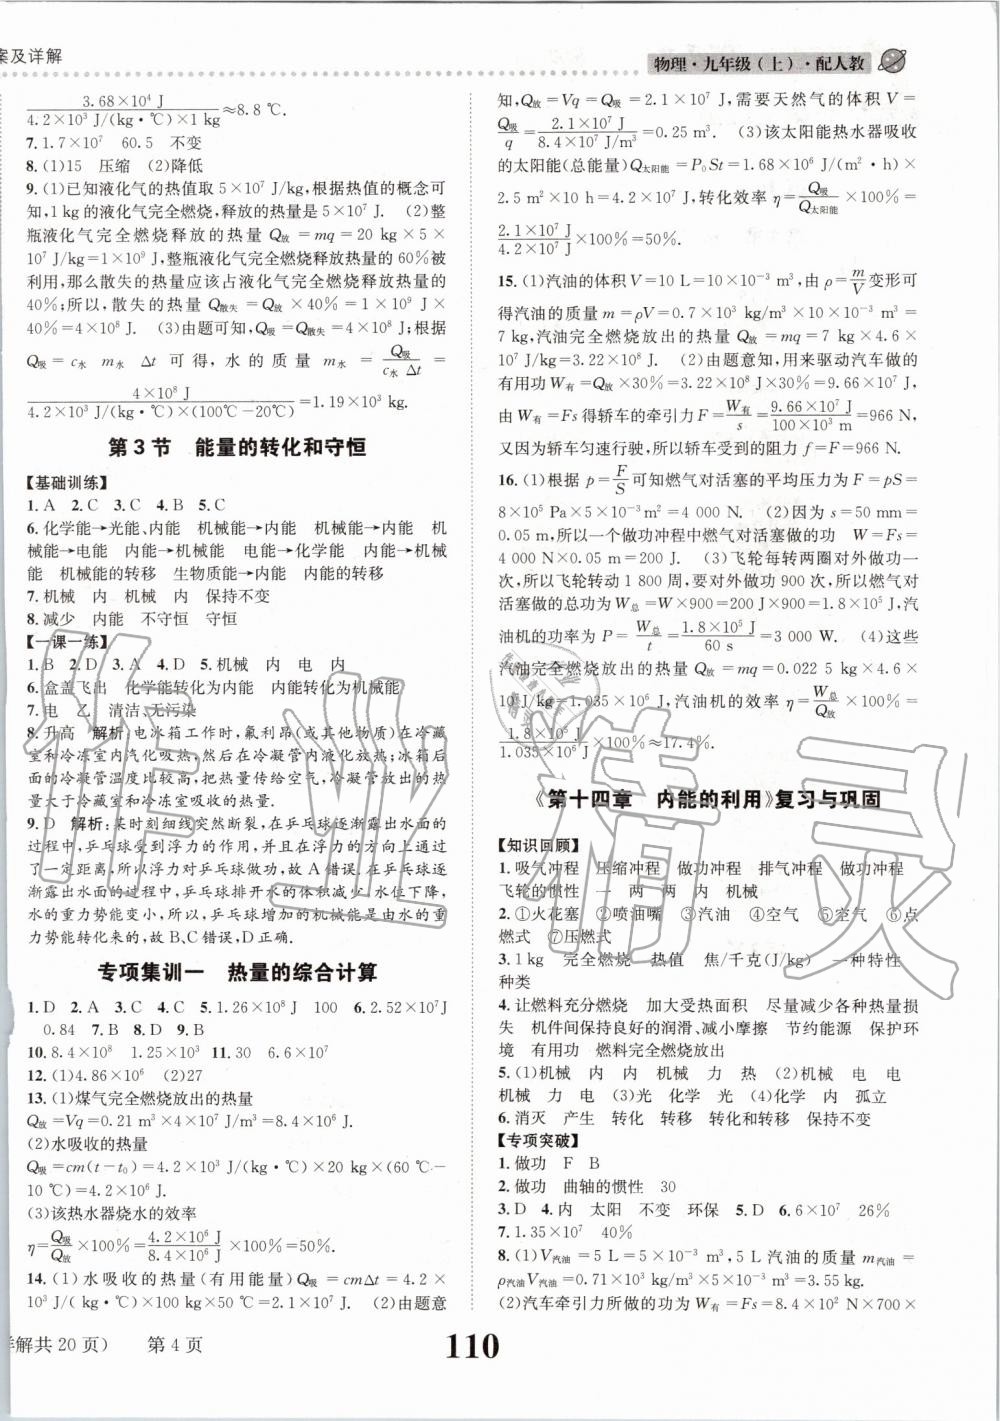 案及详解
物理·九年级(上)·配人教
3.68×10⁴ J
4.2×10³ J/(kg·℃)×1 kg ≈8.8 ℃.
7.1.7×10⁷ 60.5 不变
8.(1)15 压缩 (2)降低
9.(1)已知液化气的热值取 5×10⁷ J/kg,根据热值的概念可
知,1 kg的液化气完全燃烧,释放的热量是 5×10⁷ J. (2)整
瓶液化气完全燃烧释放的热量 Q放=mq=20 kg×5×
10⁷ J/kg=1×10⁹ J,整瓶液化气完全燃烧释放热量的60%被
利用,那么散失的热量应该占液化气完全燃烧释放热量的
40%;所以,散失的热量 Q散失=Q放×40%=1×10⁹ J×
40%=4×10⁸ J. (3)由题可知,Q吸=Q散失=4×10⁸ J;根据
Q吸=c水 m水 Δt 可得,水的质量 m水=Q吸/(c水 Δt)=
4×10⁸ J
4.2×10³ J/(kg·℃)×(100℃-20℃) =1.19×10³ kg.
第3节 能量的转化和守恒
【基础训练】
1.A 2.C 3.C 4.B 5.C
6.化学能→光能、内能 机械能→内能 机械能→内能 机
械能→电能 内能→机械能 电能→化学能 内能→机械
能 机械能的转移 生物质能→内能 内能的转移
7.机械 内 机械 内 保持不变
8.减少 内能 不守恒 守恒
【一课一练】
1.B 2.D 3.A 4.D 5.机械 内 电 内
6.盒盖飞出 化学能转化为内能 内能转化为机械能
7.电 乙 清洁、无污染
8.升高 解析:电冰箱工作时,氟利昂(或其他物质)在冷藏
室和冷冻室内汽化吸热,然后在冷凝管内液化放热;冰箱后
面的冷凝管温度比较高,热量传给空气,冷凝管放出的热
量大于冷藏室和冷冻室吸收的热量.
9.D 解析:某时刻细线突然断裂,在乒乓球逐渐露出水面的
过程中,乒乓球受到浮力的作用,并且在浮力的方向上通过
了一定距离,所以浮力对乒乓球做功,故A错误.在乒乓球逐
渐露出水面的过程中,乒乓球排开水的体积减少,水位下降,
水的重力势能变小,所以,乒乓球增加的机械能是由水的重
力势能转化来的,故B、C错误,D正确.
专项集训一 热量的综合计算
1.D 2.A 3.C 4.C 5.1.26×10⁸ J 100 6.2.52×10⁷J
0.84 7.B 8.D 9.B
10.8.4×10⁸ 1.25×10³ 11.30 6.6×10⁷
12.(1)4.86×10⁶ (2)27
13.(1)煤气完全燃烧放出的热量
Q放=Vq=0.21 m³×4×10⁷ J/m³=8.4×10⁶ J.
(2)水吸收的热量
Q吸=cm(t-t₀)=4.2×10³ J/(kg·℃)×20 kg×(60 ℃-
10 ℃)=4.2×10⁶ J.
(3)该热水器烧水的效率
η=Q吸/Q放×100%=4.2×10⁶ J/8.4×10⁶ J×100%=50%.
14.(1)水吸收的热量(有用能量)Q吸=cmΔt=4.2×
10³ J/(kg·℃)×100 kg×50 ℃=2.1×10⁷ J. (2)由题意
知,Q放=Vq=Q吸=2.1×10⁷ J,需要天然气的体积 V=
Q吸/q=2.1×10⁷ J/8.4×10⁷ J/m³=0.25 m³. (3)该太阳能热水器吸收
的太阳能(总能量)Q太阳能=P₀St=1.68×10⁶ J/(m²·h)×
2.5 m²×10 h=4.2×10⁷ J,转化效率 η=Q吸/Q太阳能×100%=
2.1×10⁷ J/4.2×10⁷ J×100%=50%.
15.(1)汽油的体积 V=10 L=10×10⁻³ m³,由 ρ=m/V变形可
得汽油的质量 m=ρV=0.7×10³ kg/m³×10×10⁻³ m³=
7 kg,汽油完全燃烧放出的热量 Q放=mq=7 kg×4.6×
10⁷ J/kg=3.22×10⁸ J. (2)由题意知,用来驱动汽车做的
有用功 W有=Q放×30%=3.22×10⁸ J×30%=9.66×10⁷ J,
由 W有=Fs得轿车的牵引力 F=W有/s=9.66×10⁷ J/100×10³ m=966 N,
又因为轿车匀速行驶,所以轿车受到的阻力 f=F=966 N.
16.(1)根据 p=F/S可知燃气对活塞的平均压力为 F=pS=
8×10⁵ Pa×5×10⁻³m²=4 000 N. (2)因为 s=50 mm=
0.05 m,所以一个做功冲程中燃气对活塞做的功 W=Fs=
4 000 N×0.05 m=200 J. (3)飞轮每转两圈对外做功一
次,所以飞轮转动 1 800 周,要对外做功 900 次,所以燃气对
活塞做的总功为 W总=W×900=200 J×900=1.8×10⁵J,汽
油机的功率为 P=W总/t=1.8×10⁵J/60 s=3 000 W. (4)这些
汽油完全燃烧放出的热量 Q放=mq=0.022 5 kg×4.6×
10⁷J/kg=1.035×10⁶ J,汽油机的效率 η=W总/Q放×100%
=1.8×10⁵ J/1.035×10⁶ J×100%≈17.4%.
《第十四章 内能的利用》复习与巩固
【知识回顾】
1.吸气冲程 压缩冲程 做功冲程 排气冲程 做功冲程
飞轮的惯性 一 两 两 内 机械
2.①火花塞 ②喷油嘴 ③汽油 ④空气 ⑤空气 ⑥点
燃式 ⑦压燃式
3.1 kg 完全燃烧 热值 焦/千克(J/kg) 一种特性
种类
4.让燃料充分燃烧 加大受热面积 尽量减少各种热量损
失 机件间保持良好的润滑、减小摩擦 节约能源 保护环
境 有用功 燃料完全燃烧放出
5.(1)机械 内 内 机械 力 热 (2)机械 电 电
机械 力 热 (3)光 化学 光 (4)化学 内 孤立
6.消灭 产生 转化 转移 转化和转移 保持不变
【专项突破】
1.做功 F B
2.做功 曲轴的惯性 30
3.D 4.内 太阳 不变 环保 5.D 6.6×10⁷ 26%
7.1.35×10⁷ 40%
8.(1)V汽油=5 L=5×10⁻³ m³,5 L汽油的质量 m汽油=
ρ汽油V汽油=0.71×10³ kg/m³×5×10⁻³ m³=3.55 kg.
(2)汽车牵引力所做的功为 W有=Fs=2×10³ N×700×
详解共20页) 第4页
110
作业精灵